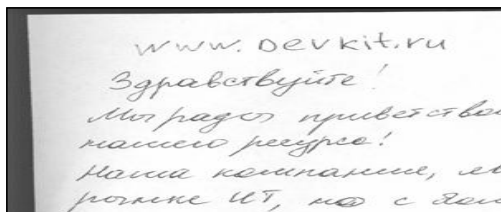 www.Devkit.ru
Здравствуйте!
Мы рады приветство
нашего ресурса!
Наша компания,
рынке ИТ, но с